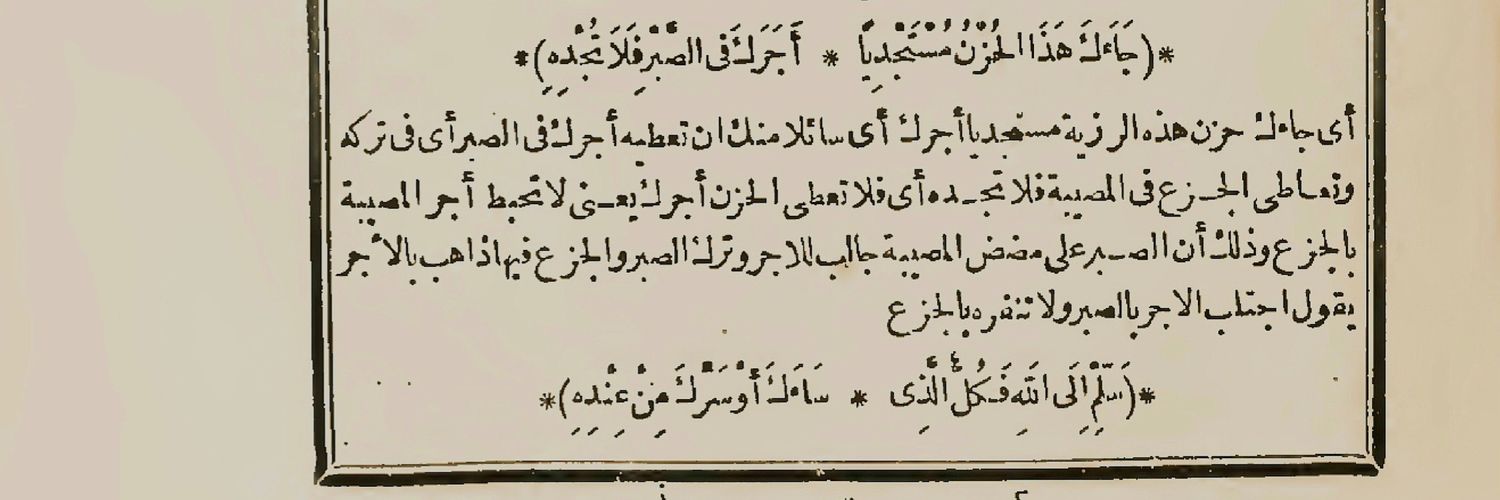 *(جَاءَكَ هَذَا الْحُزْنُ مُسْتَجْدِيًا * أَجْرَكَ فِى الصَّبْرِ فَلَا تُجْدِهِ)*
أى جاءك حزن هذه الرزية مستجديا أجرك أى سائلا منك ان تعطيه أجرك فى الصبر أى فى تركه
وتعاطى الجزع فى المصيبة فلا تجده أى فلا تعطى الحزن أجرك يعنى لا تحبط أجر المصيبة
بالجزع وذلك أن الصبر على مضض المصيبة جالب للاجر وترك الصبر والجزع فيها ذاهب بالأجر
يقول اجتلب الاجر بالصبر ولا تنفره بالجزع
*(سَلِّمْ إِلَى اللَّهِ فَكُلُّ الَّذِى * سَاءَكَ أَوْ سَرَّكَ مِنْ عِنْدِهِ)*